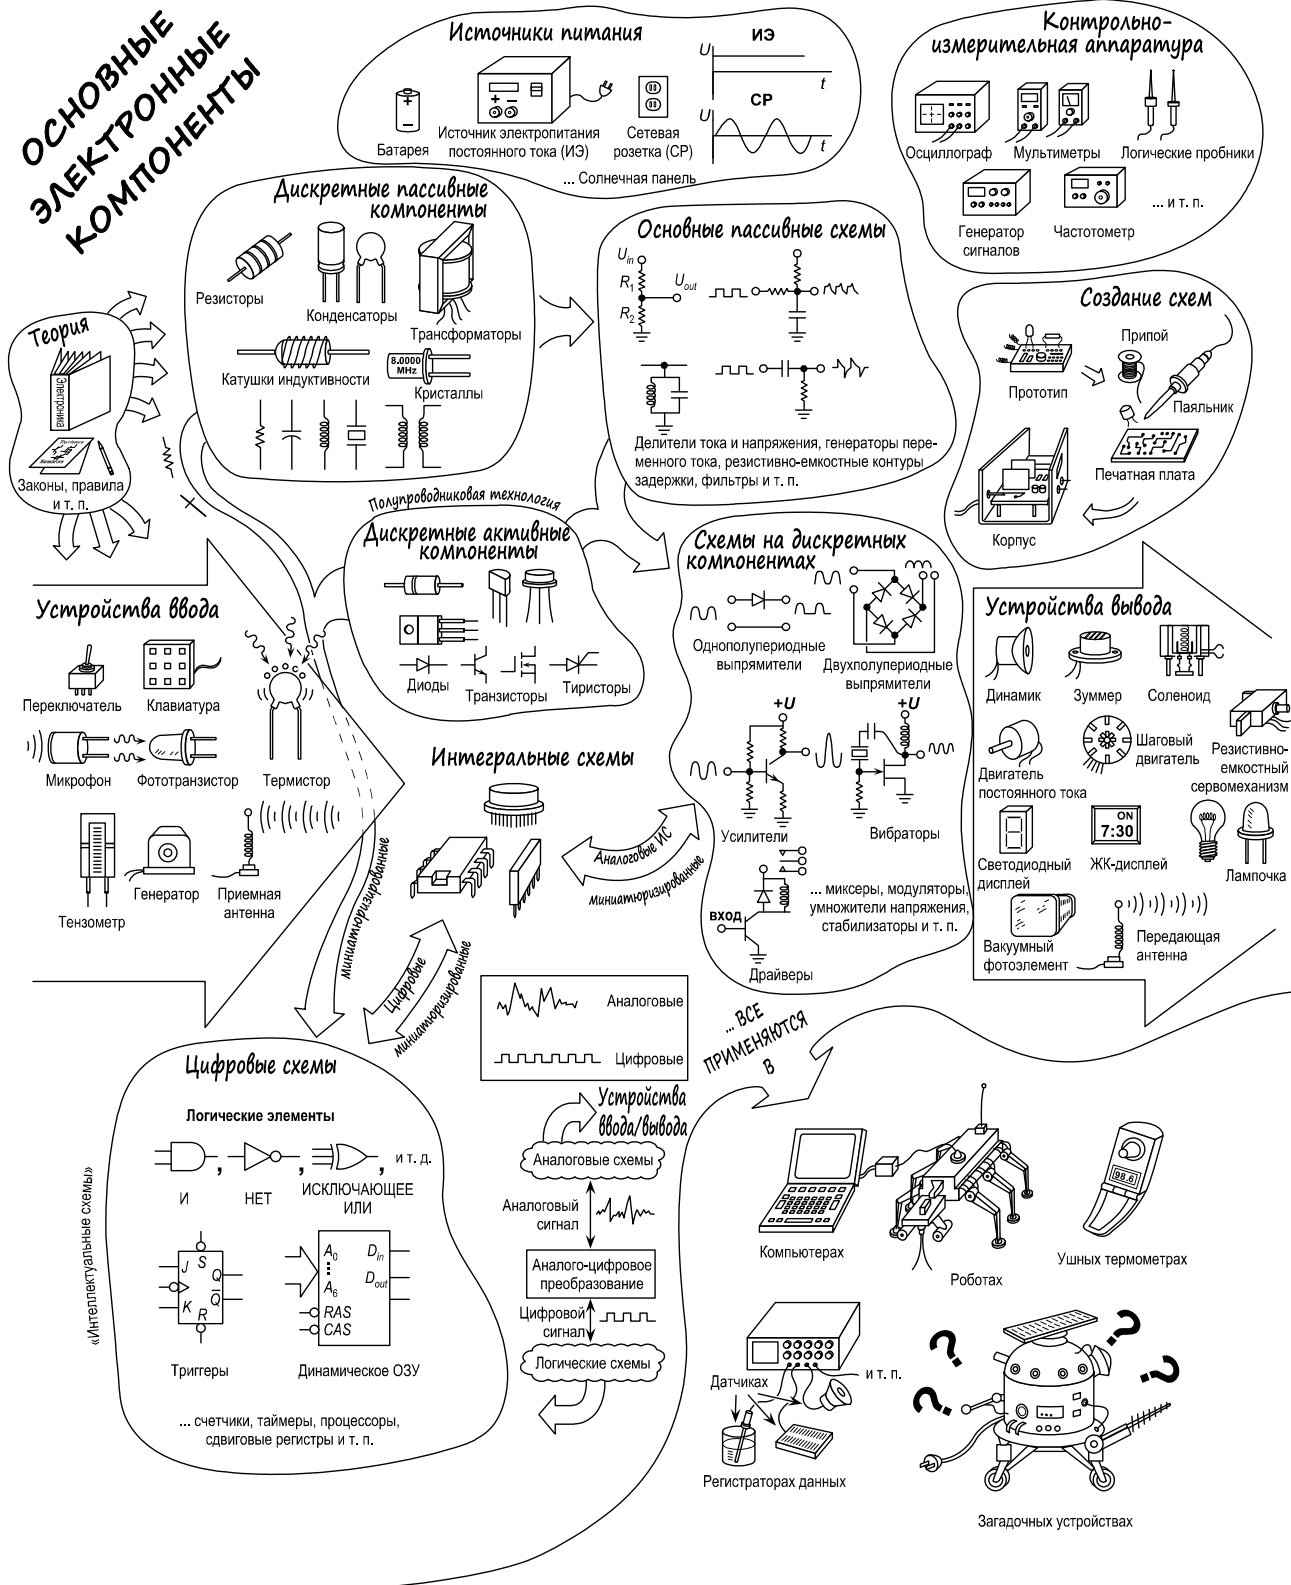 ОСНОВНЫЕ
ЭЛЕКТРОННЫЕ
КОМПОНЕНТЫ
Источники питания
ИЭ
U
t
СР
U
t
+
+ −
Батарея
Источник электропитания
постоянного тока (ИЭ)
Сетевая
розетка (СР)
... Солнечная панель
Контрольно-
измерительная аппаратура
Осциллограф
Мультиметры
Логические пробники
Генератор
сигналов
Частотометр
... и т. п.
Дискретные пассивные
компоненты
Резисторы
Конденсаторы
Трансформаторы
8.0000
MHz
Катушки индуктивности
Кристаллы
Основные пассивные схемы
Uin
R1
Uout
R2
Делители тока и напряжения, генераторы пере-
менного тока, резистивно-емкостные контуры
задержки, фильтры и т. п.
Создание схем
Припой
Прототип
Паяльник
Печатная плата
Корпус
Теория
Электроника
Законы, правила
и т. п.
Полупроводниковая технология
Дискретные активные
компоненты
Диоды
Транзисторы
Тиристоры
Схемы на дискретных
компонентах
Однополупериодные
выпрямители
Двухполупериодные
выпрямители
+U
+U
Усилители
Вибраторы
... миксеры, модуляторы,
умножители напряжения,
стабилизаторы и т. п.
вход
Драйверы
Устройства ввода
Переключатель
Клавиатура
Микрофон
Фототранзистор
Термистор
Тензометр
Генератор
Приемная
антенна
Интегральные схемы
Аналоговые ИС
миниатюризированные
миниатюризированные
Цифровые
миниатюризированные
Устройства вывода
Динамик
Зуммер
Соленоид
Двигатель
постоянного тока
Шаговый
двигатель
Резистивно-
емкостный
сервомеханизм
ON
7:30
Светодиодный
дисплей
ЖК-дисплей
Лампочка
Вакуумный
фотоэлемент
Передающая
антенна
Аналоговые
Цифровые
... ВСЕ
ПРИМЕНЯЮТСЯ
В
Цифровые схемы
«Интеллектуальные схемы»
Логические элементы
, , , и т. д.
И
НЕТ
ИСКЛЮЧАЮЩЕЕ
ИЛИ
J S Q
K R Q̅
A0 Din
A6 Dout
RAS
CAS
Триггеры
Динамическое ОЗУ
... счетчики, таймеры, процессоры,
сдвиговые регистры и т. п.
Устройства
ввода/вывода
Аналоговые схемы
Аналоговый
сигнал
Аналого-цифровое
преобразование
Цифровой
сигнал
Логические схемы
Компьютерах
Роботах
98.6
Ушных термометрах
Датчиках
и т. п.
Регистраторах данных
? ? ? ?
Загадочных устройствах